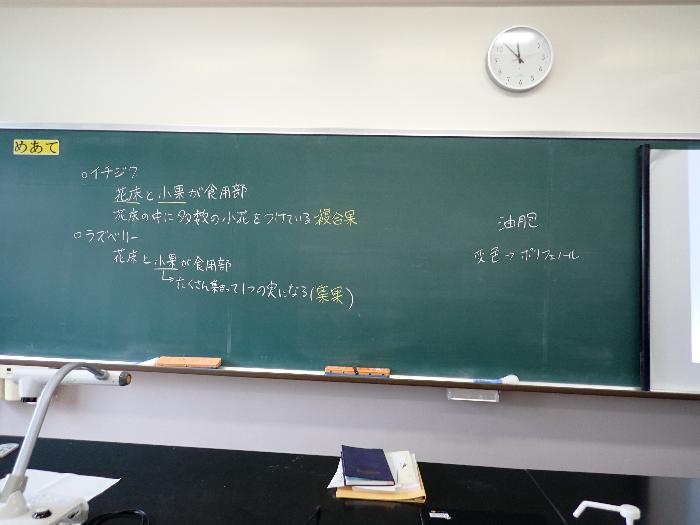 めあて
○イチジク
花床と小果が食用部
花床の中に多数の小花をつけている 複合果
○ラズベリー
花床と小果が食用部
↳たくさん集まって1つの実になる(集果)
油胞
変色→ポリフェノール